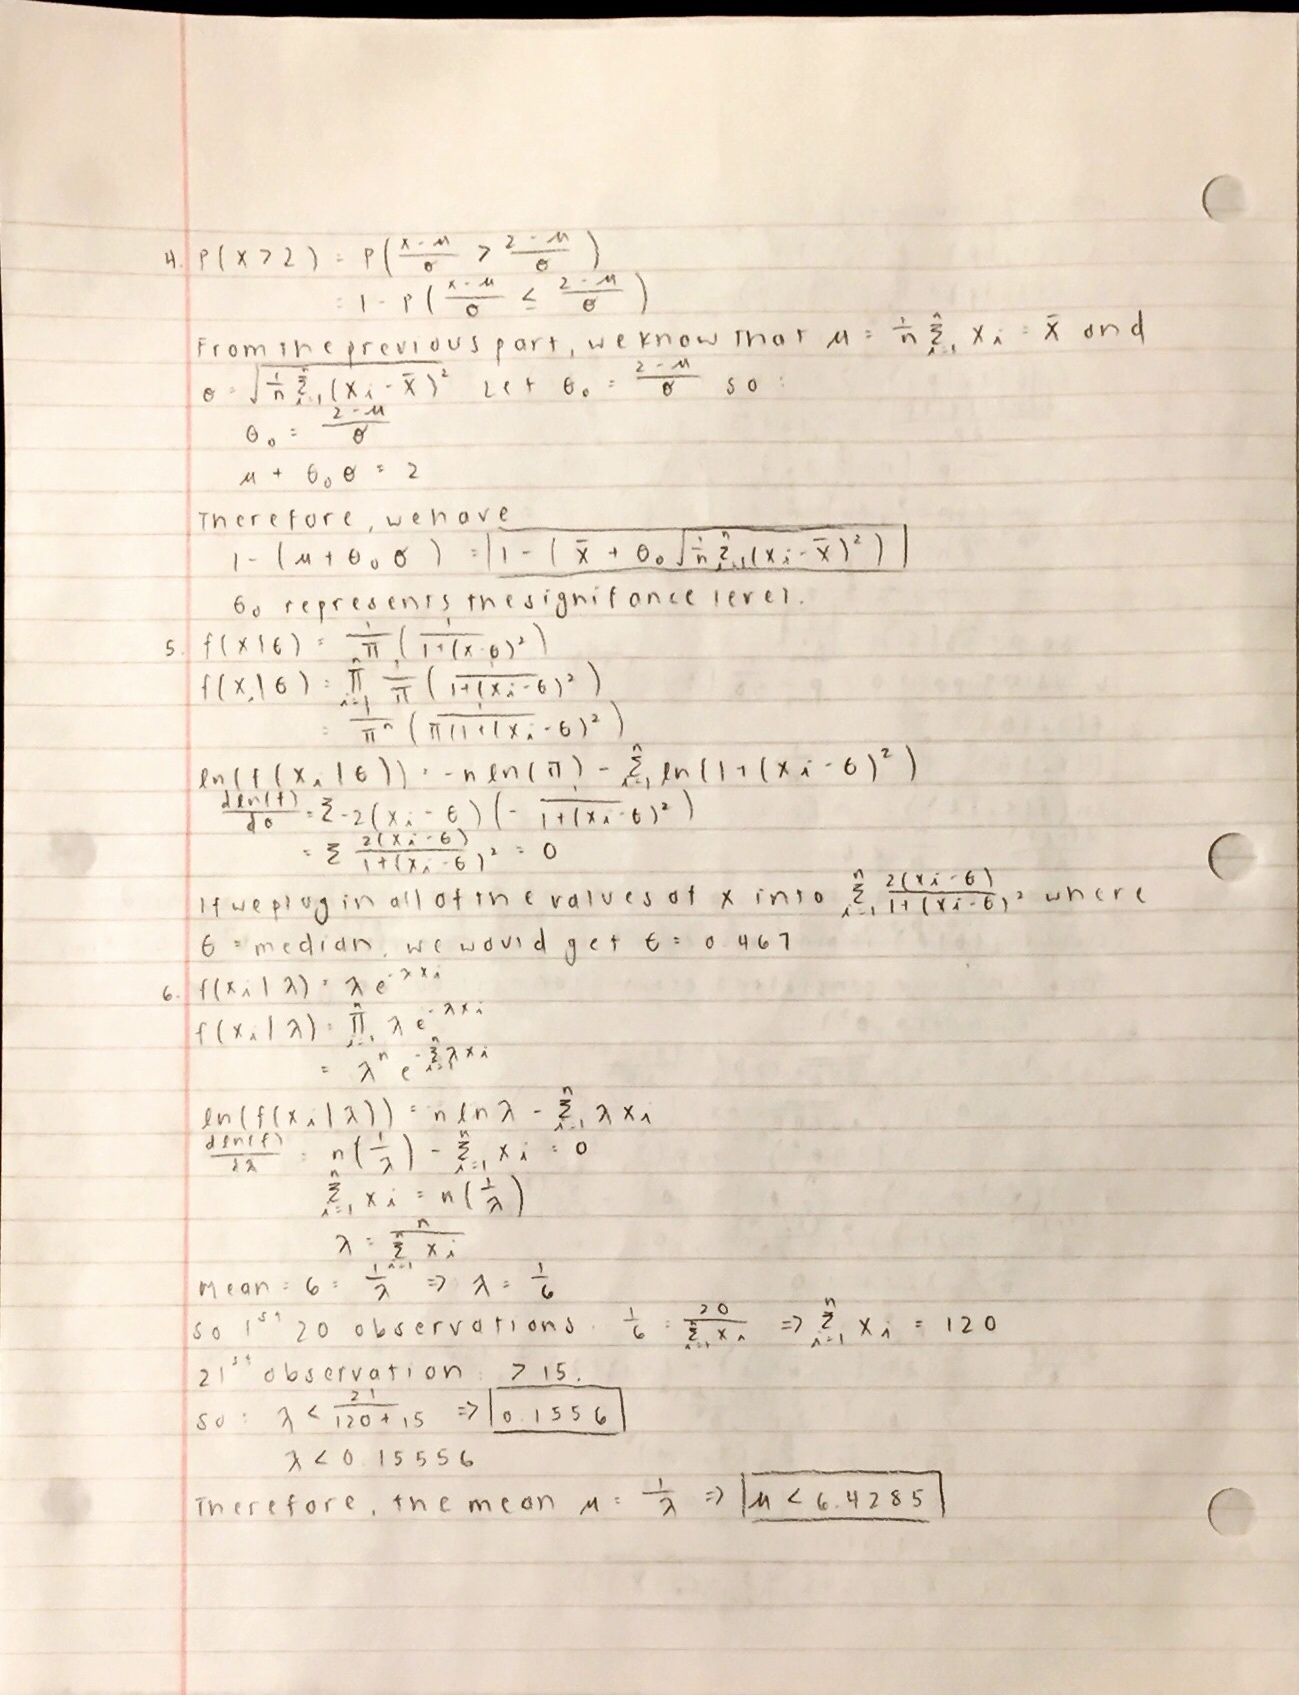 4. P(X > 2) = P((x - μ)/σ > (2 - μ)/σ)
= 1 - P((x - μ)/σ ≤ (2 - μ)/σ)
From the previous part, we know that μ = 1/n Σ_{i=1}^{n} x_i = x̄ and
σ = √(1/n Σ_{i=1}^{n} (x_i - x̄)²) Let θ₀ = (2 - μ)/σ so:
θ₀ = (2 - μ)/σ
μ + θ₀ σ = 2
Therefore, we have
1 - (μ + θ₀ σ) = 1 - (x̄ + θ₀ √(1/n Σ_{i=1}^{n} (x_i - x̄)²))
θ₀ represents the signifance level.
5. f(x|θ) = 1/π (1/(1+(x-θ)²))
f(x_i|θ) = Π_{i=1}^{n} 1/π (1/(1+(x_i-θ)²))
= 1/πⁿ (1/(π(1+(x_i-θ)²)))
ln(f(x_i|θ)) = -n ln(π) - Σ_{i=1}^{n} ln(1+(x_i-θ)²)
dln(f)/dθ = Σ -2(x_i-θ)(-1/(1+(x_i-θ)²))
= Σ 2(x_i-θ)/(1+(x_i-θ)²) = 0
If we plug in all of the values of x into Σ_{i=1}^{n} 2(x_i-θ)/(1+(x_i-θ)²) where
θ = median, we would get θ = 0.467
6. f(x_i|λ) = λ e^{-λx_i}
f(x_i|λ) = Π_{i=1}^{n} λ e^{-λx_i}
= λⁿ e^{-Σ_{i=1}^{n} λx_i}
ln(f(x_i|λ)) = n ln λ - Σ_{i=1}^{n} λx_i
dln(f)/dλ = n(1/λ) - Σ_{i=1}^{n} x_i = 0
Σ_{i=1}^{n} x_i = n(1/λ)
λ = n/(Σ_{i=1}^{n} x_i)
Mean = 6 = 1/λ => λ = 1/6
so 1st 20 observations: 1/6 = 20/(Σ_{i=1}^{n} x_i) => Σ_{i=1}^{n} x_i = 120
21st observation: > 15.
so: λ < 21/(120+15) => 0.1556
λ < 0.15556
Therefore, the mean μ = 1/λ => μ < 6.4285